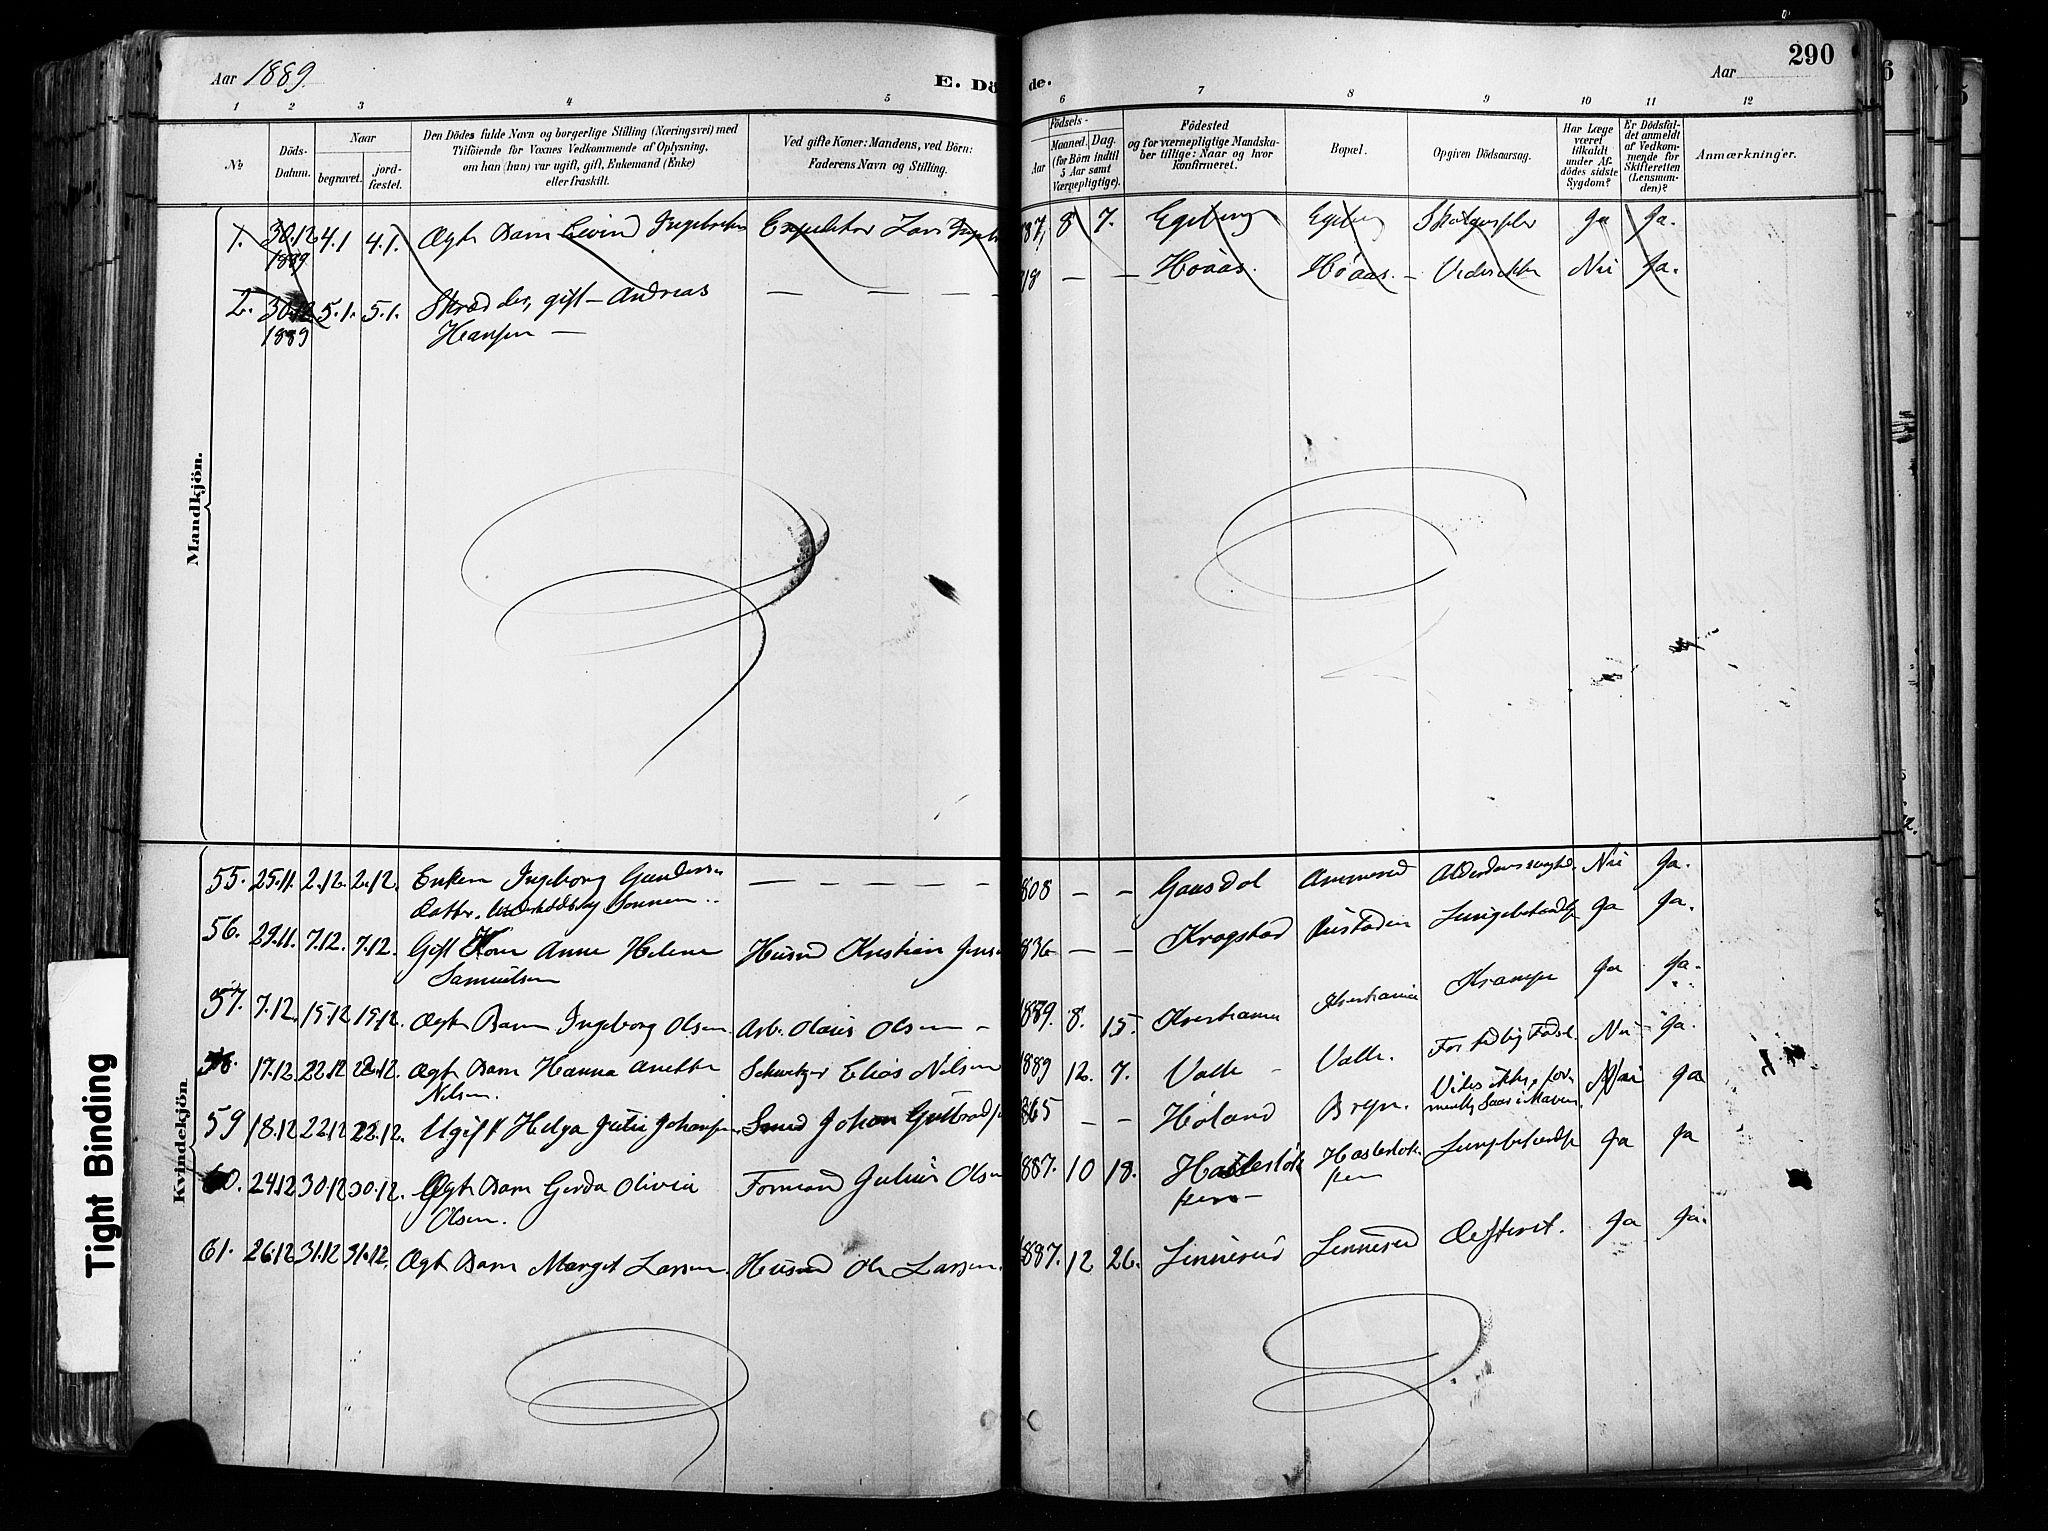 Aar 1889.
E. Dö
de.
Aar
290
1 2 3 4 5 6 7 8 9 10 11 12
No
Döds-
Datum.
Naar
begravet.
jord-
fæstet.
Den Dödes fulde Navn og borgerlige Stilling (Næringsvei) med
Tilföiende for Voxnes Vedkommende af Oplysning,
om han (hun) var ugift, gift, Enkemand (Enke)
eller fraskilt.
Ved gifte Koner: Mandens, ved Börn:
Faderens Navn og Stilling.
Födsels-
Aar
Maaned.
Dag.
(for Börn indtil
5 Aar samt
Værnepligtige).
Födested
og for værnepligtige Mandska-
ber tillige: Naar og hvor
konfirmeret.
Bopæl.
Opgiven Dödsaarsag.
Har Læge
været
tilkaldt
under Af-
dödes sidste
Sygdom?
Er Dödsfal-
det anmeldt
af Vedkom-
mende for
Skifteretten
(Lensman-
den)?
Anmærkninger.
Mandkjön.
1. 30.12 4.1 4.1. Ægte Barn Eivin Lars 87, 8 7. Egeberg Egeberg Ja Ja.
1889
2. 30.12 5.1. 5.1. Skrædder, gift – Andreas — — — 18 — — Höaas. Höaas. – Vides ikke Nei Ja.
1889 Hansen —
Kvindekjön.
55. 25.11. 2.12. 2.12. Enken Ingeborg — — — — — 808 — — Gausdal Alderdomssvaghed. Nei Ja.
datter. Sonnen.
56. 29.11. 7.12. 7.12. Gift Kone Anne Helene Husmd Kristian Jens 836 — — Krogstad Rustaden Lungebetændelse Ja Ja.
Samuelsen
57. 7.12. 15.12 15.12. Ægte Barn Ingeborg Olsen Arb. Olaus Olsen – 1889. 8. 15. Kristiania Kristiania Krampe Ja Ja.
58. 17.12. 22.12 22.12. Ægte Barn Hanna Anette Schweitzer Elias Nilsen 1889 12. 7. Valle – Valle. For tidlig Födsel Nei Ja.
Nilsen.
59 18.12 22.12 22.12. Ugift Helga Julie Johansen. Smed Johan 865 — — Höland Bryn. Vides ikke, for- Nei Ja
mentlig Saar i Maven.
60. 24.12 30.12 30.12. Ægte Barn Gerda Olivia Formand Julius Olsen 887. 10 18. Haslelök- Hasleløk- Lungebetændelse Ja Ja
Olsen. ken – ken
61. 26.12 31.12 31.12. Ægte Barn Margit Larsen. Husmd Ole Larsen. 887. 12 26. Linnerud Linnerud Ja Ja.
Tight Binding